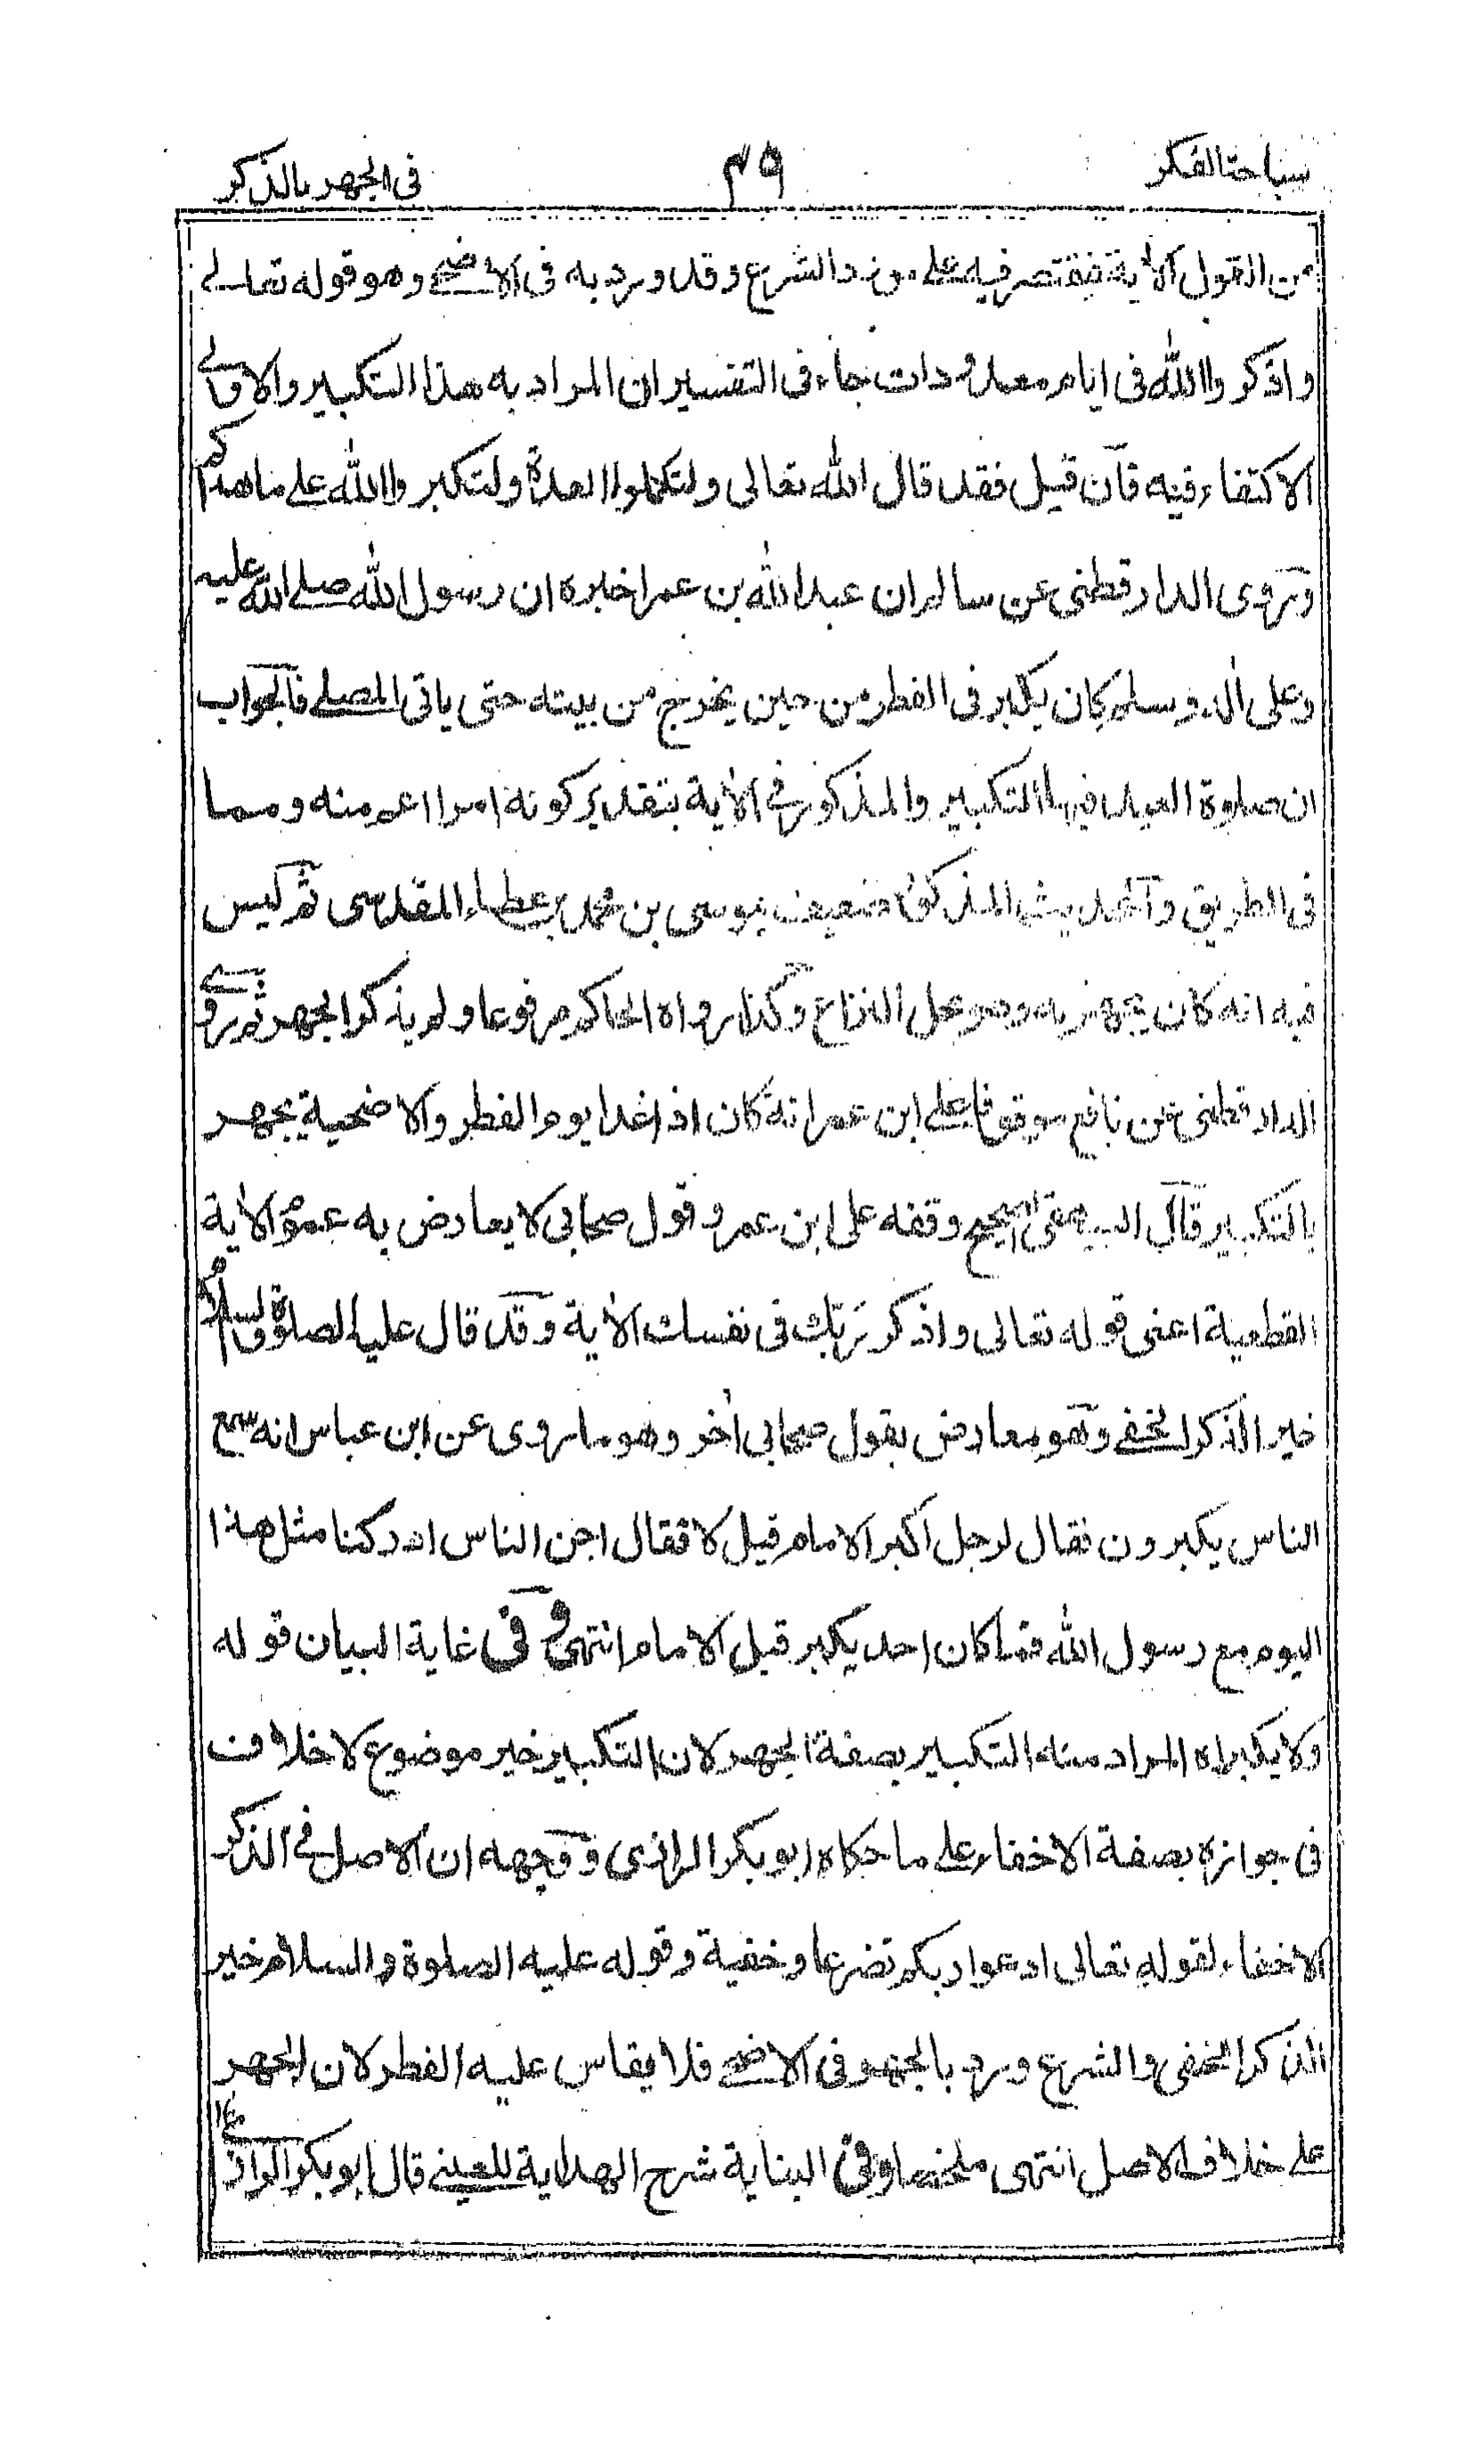 سباحة الفكر ٣٩ في الجهر بالذكر
من القول الاٰية فيقتصر فيه على مورد الشرع وقد ورد به فى الاضحى وهو قوله تعالى
واذكروا الله فى ايام معدودات جاء فى التفسير ان المراد به هذا التكبير والاولى
الاكتفاء فيه فان قيل فقد قال الله تعالى ولتكملوا العدة ولتكبروا الله على ما هداكم
وروى الدارقطنى عن سالم ان عبد الله بن عمر اخبره ان رسول الله صلى الله عليه
وعلى اٰله وسلم كان يكبر فى الفطر من حين يخرج من بيته حتى ياتى المصلى فالجواب
ان صلوة العيد فيها التكبير والمذكور فى الاٰية بتقدير كونه امرا اعم منه ومما
فى الطريق والحديث المذكور ضعيف بموسى بن محمد بن عطاء المقدسى ثم ليس
فيه انه كان يجهر به وهو محل النزاع وكذا رواه الحاكم مرفوعا ولم يذكر الجهر ثم روى
الدارقطنى عن نافع موقوفا على ابن عمر انه كان اذا غدا يوم الفطر والاضحية يجهر
بالتكبير قال البيهقى الصحيح وقفه على ابن عمر وقول صحابى لا يعارض به عموم الاٰية
القطعية اعنى قوله تعالى واذكر ربك فى نفسك الاٰية وقد قال عليه الصلوة والسلام
خير الذكر الخفى وهو معارض بقول صحابى اٰخر وهو ما روى عن ابن عباس انه سمع
الناس يكبرون فقال لرجل اكبر الامام قيل لا فقال اجن الناس ادركنا مثل هذا
اليوم مع رسول الله فما كان احد يكبر قبل الامام انتهى وفى غاية البيان قوله
ولا يكبراه المراد منه التكبير بصفة الجهر لان التكبير خير موضوع لا خلاف
فى جوازه بصفة الاخفاء على ما حكاه ابو بكر الرازى ووجهه ان الاصل فى الذكر
الاخفاء لقوله تعالى ادعوا ربكم تضرعا وخفية وقوله عليه الصلوة والسلام خير
الذكر الخفى والشرع ورد بالجهر فى الاضحى فلا يقاس عليه الفطر لان الجهر
على خلاف الاصل انتهى ملخصا وفى البناية شرح الهداية للعينى قال ابو بكر الرازى